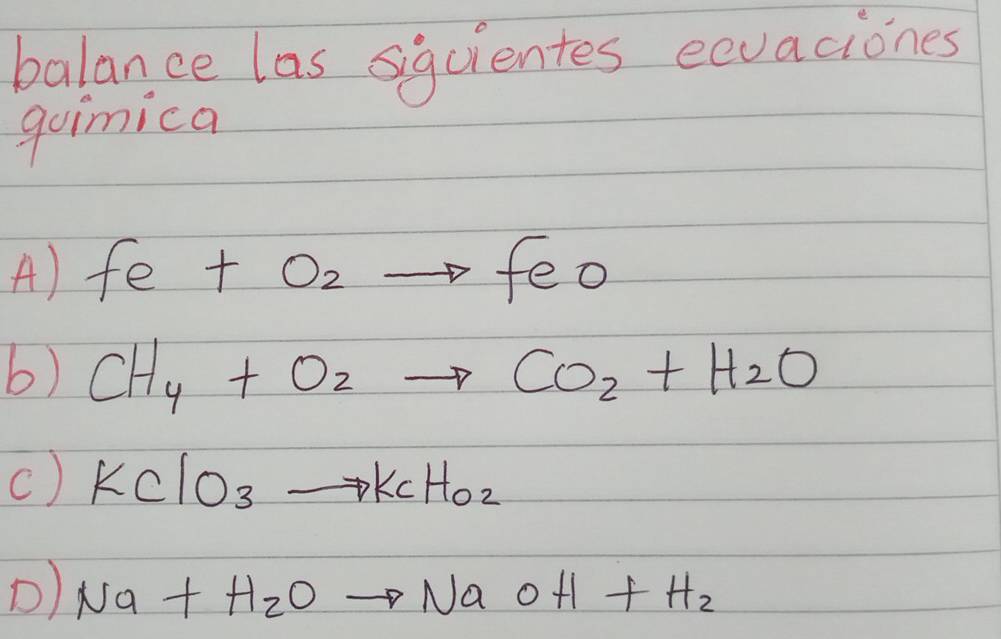 balance las siguientes ecuaciones
quimica
A) fe + O₂ → feo
b) CH₄ + O₂ → CO₂ + H₂O
c) KClO₃ → KcHO₂
D) Na + H₂O → Na OH + H₂